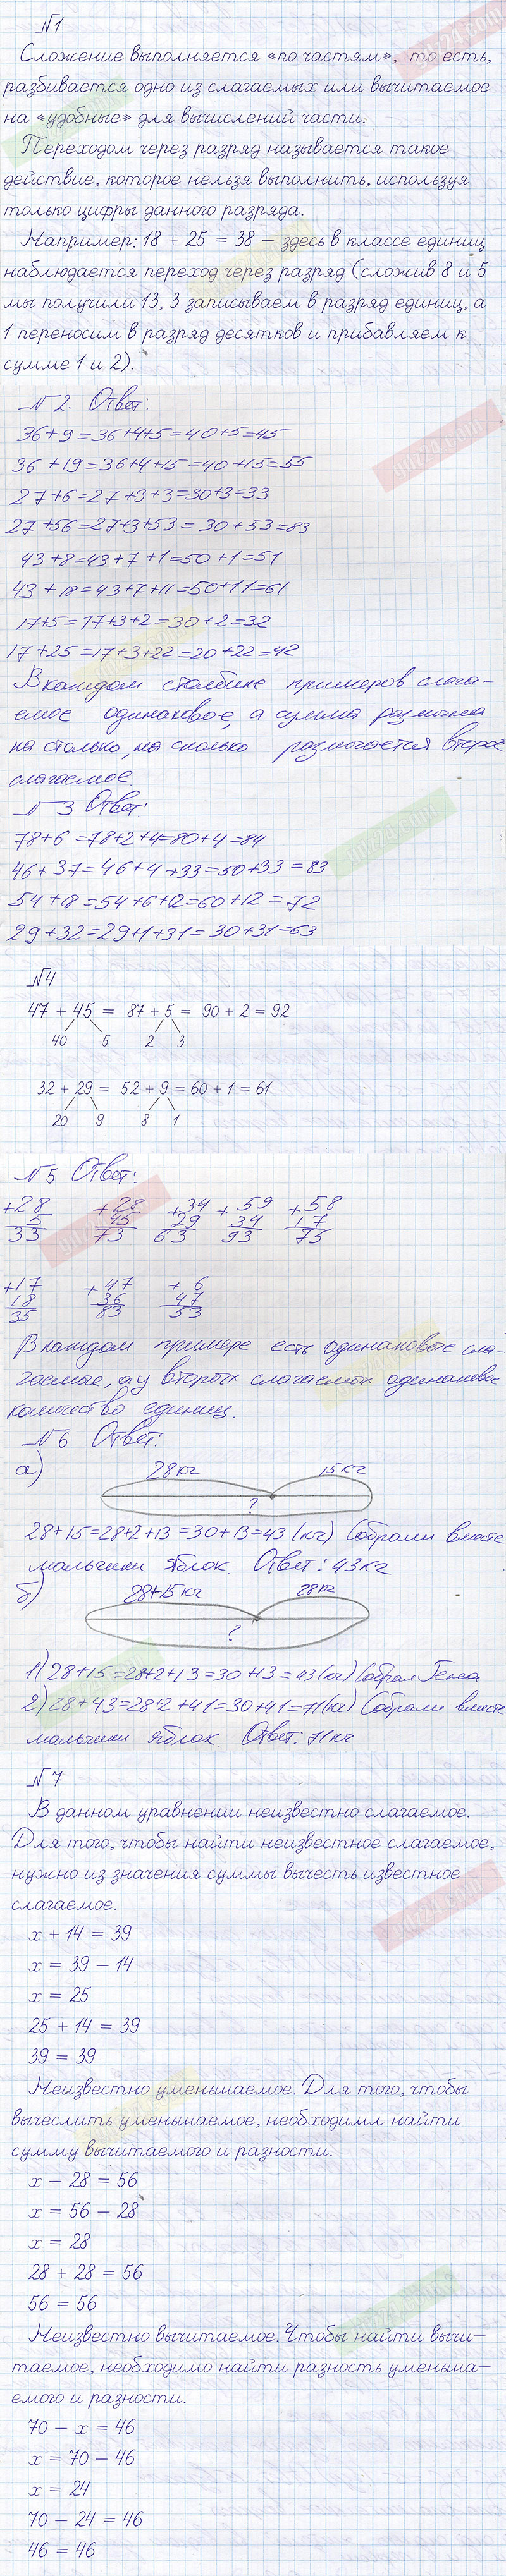 №1
Сложение выполняется «по частям», то есть,
разбивается одно из слагаемых или вычитаемое
на «удобные» для вычислений части.
Переходом через разряд называется такое
действие, которое нельзя выполнить, используя
только цифры данного разряда.
Например: 18 + 25 = 38 – здесь в классе единиц
наблюдается переход через разряд (сложив 8 и 5
мы получили 13, 3 записываем в разряд единиц, а
1 переносим в разряд десятков и прибавляем к
сумме 1 и 2).
№2. Ответ:
36+9=36+4+5=40+5=45
36+19=36+4+15=40+15=55
27+6=27+3+3=30+3=33
27+56=27+3+53=30+53=83
43+8=43+7+1=50+1=51
43+18=43+7+11=50+11=61
17+5=17+3+2=30+2=32
17+25=17+3+22=20+22=42
В каждом столбике примеров слага-
емое одинаковое, а сумма различна
на столько, на сколько различается второе
слагаемое.
№3 Ответ:
78+6=78+2+4=80+4=84
46+37=46+4+33=50+33=83
54+18=54+6+12=60+12=72
29+32=29+1+31=30+31=63
№4
47 + 45 = 87 + 5 = 90 + 2 = 92
40 5 2 3
32 + 29 = 52 + 9 = 60 + 1 = 61
20 9 8 1
№5 Ответ:
+28 +28 +34 +59 +58
5 45 29 34 17
33 73 63 93 75
+17 +47 +6
18 36 47
35 83 53
В каждом примере есть одинаковые сла-
гаемые, а у вторых слагаемых одинаковое
количество единиц.
№6 Ответ:
а)
28кг 15кг
?
28+15=28+2+13=30+13=43 (кг) Собрали вместе
мальчики яблок. Ответ: 43кг
б)
28+15кг 28кг
?
1) 28+15=28+2+13=30+13=43(кг) Собрал Гена
2) 28+43=28+2+41=30+41=71(кг) Собрали вместе
мальчики яблок Ответ: 71кг
№7
В данном уравнении неизвестно слагаемое.
Для того, чтобы найти неизвестное слагаемое,
нужно из значения суммы вычесть известное
слагаемое.
x + 14 = 39
x = 39 – 14
x = 25
25 + 14 = 39
39 = 39
Неизвестно уменьшаемое. Для того, чтобы
вычеслить уменьшаемое, необходимл найти
сумму вычитаемого и разности.
x – 28 = 56
x = 56 – 28
x = 28
28 + 28 = 56
56 = 56
Неизвестно вычитаемое. Чтобы найти вычи–
таемое, необходимо найти разность уменьша–
емого и разности.
70 – x = 46
x = 70 – 46
x = 24
70 – 24 = 46
46 = 46